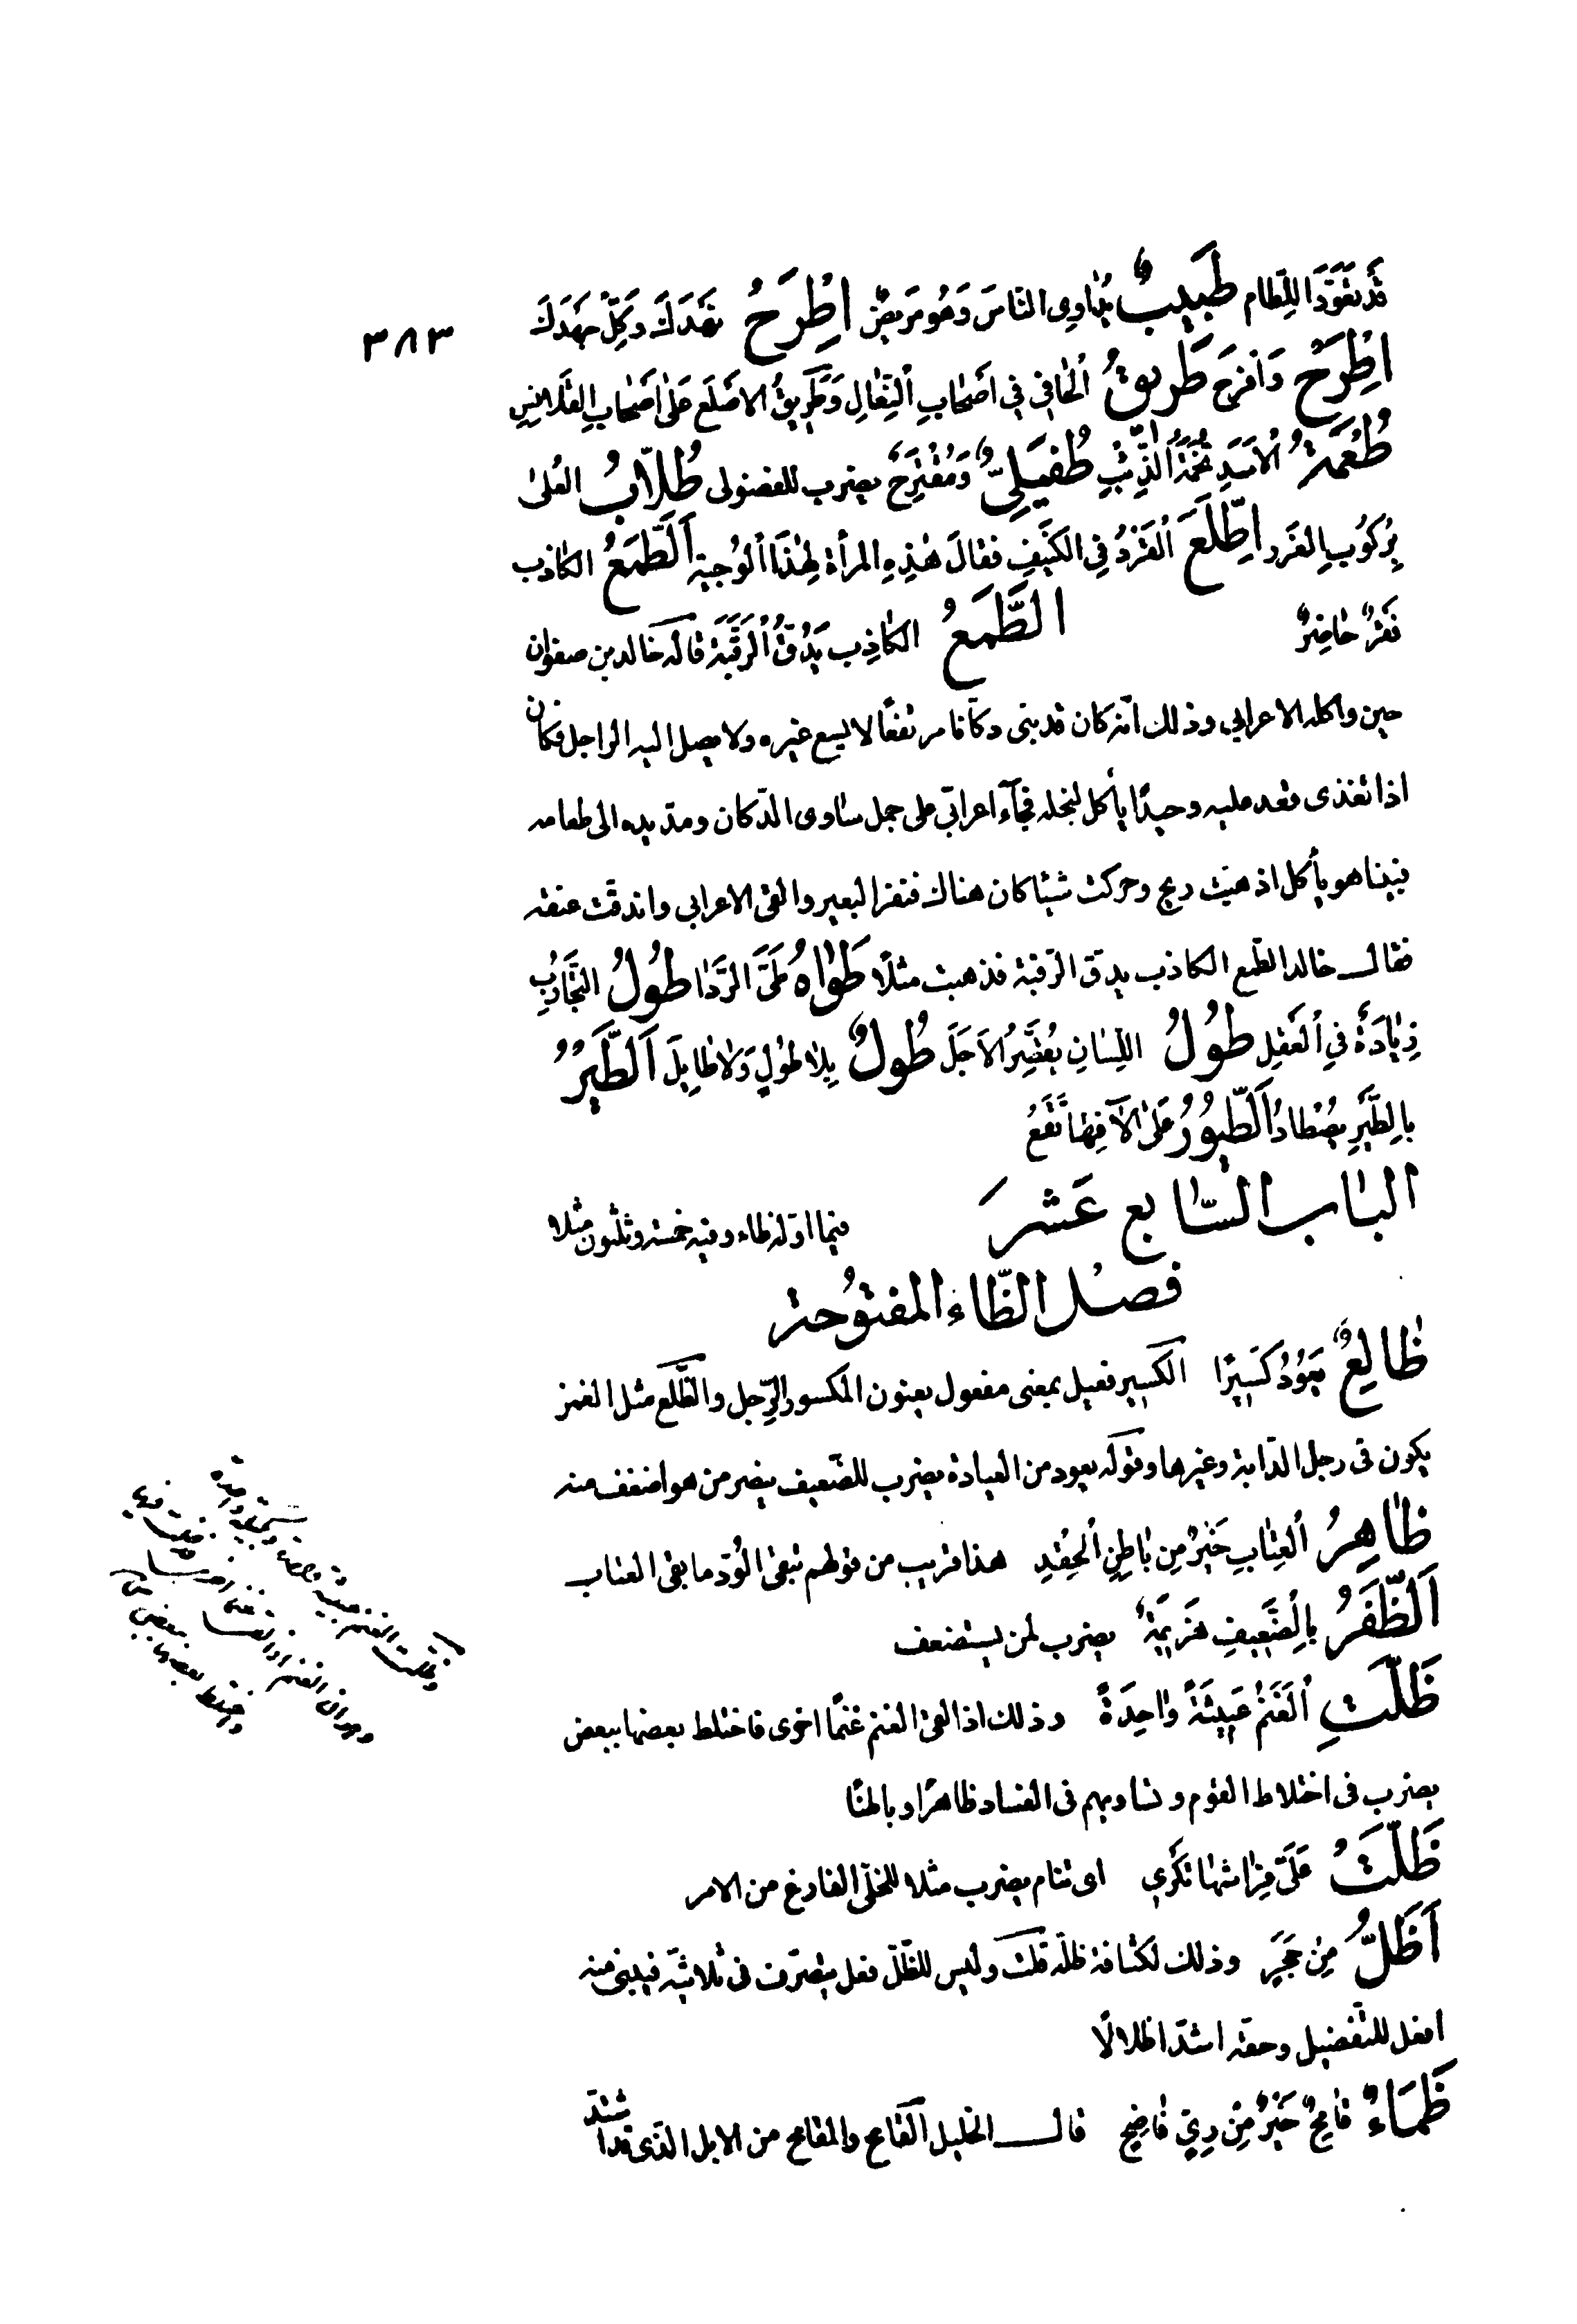 ٣٨٣
قَدْ تَعَوَّدَ اللِّطام طَبِيبٌ يُدٰاوِى النّاسَ وَهُوَ مَريضٌ اِطْرَحْ نَهْدَكَ وَكِلْ جَهَدَكَ
اِطْرَحْ وَافْرَح طَرِيقُ الْحٰافي في اَصْحٰابِ النِّعٰالِ وَطَرِيقُ الاَصْلَعِ عَلىٰ اَصْحٰابِ القَلَانِسِ
طُعْمَةُ الْاَسَدِ تُخْمَةُ الذِّئْبِ طُفَيْلِىٌّ وَمُقْتَرِحٌ يضرب للفضولى طُلّابُ العُلىٰ
بِرُكُوبِ الغَرَرِ اِطَّلَعَ الْقِرْدُ في الكَنيفِ فقالَ هٰذِهِ المرأة لِهٰذَا الْوُجَيْه اَلطَّمَعُ الكاذب
فَقْرٌ حاضِرٌ الطَّمَعُ الكاذِب يَدُقُّ الرَّقَبَة قاله خالد بن صفوان
حين واكله الاعرابي وذلك انّه كان قد بنى دكّانا مرتفعًا لا يسع غيره ولا يصل اليه الراجل فكان
اذا تغذى قعد عليه وحيدًا يأكل لبخله فجآء اعرابيّ على جمل سٰاوى الدّكان ومدّ يده الى طعامه
فبينا هو يأكل اذ هبّت ريح وحركت شيئا كان هناك فنفر البعير والقى الاعرابي واندقّت عنقه
فقال خالد الطّمع الكاذب يدقّ الرّقبة فذهبت مثلًا طَوٰاهُ طَىَّ الرِّدٰا طُولُ التَّجارُبِ
زِيٰادَةٌ فِي الْعَقْلِ طُولُ اللِّسٰانِ يُقَصِّرُ الاَجَلَ طُولٌ بِلٰا طَوْلٍ وَلٰا طٰائِلَ اَلطَّيْرُ
بِالطَّيْرِ يُصْطادُ اَلطُّيُورُ عَلىٰ اُلّافِهٰا تَقَعُ
البٰاب السّابع عَشَرَ فيما اوّله ظاء وفيه خمسة وثلثون مثلا
فصل الظّاء المفتوُحة
ظٰالِعٌ يَعُودُ كَسيرًا الكسير فعيل بمعنى مفعول يعنون المكسور الرِّجل والظّلع مثل الغمز
يكون فى رجل الدّابة وغيرها وقوله يعود من العيادة يضرب للضّعيف ينصر من هو اضعف منه
ظاهِرُ الْعِتٰابِ خَيْرٌ مِن بٰاطِنِ الْحِقْدِ هذا قريب من قولهم تبقى الوُدّ ما بقى العتاب
اَلظَّفَرُ بِالضَّعِيفِ هَزِيمَةٌ يضرب لمن يستضعف
ظَلَّتِ الْغَنَمُ عَبِيثَةً وٰاحِدَةً وذلك اذا لقى الغنم غنمًا اخرى فاختلط بعضها ببعض
يضرب فى اختلاط القوم وتساويهم فى الفساد ظاهرًا وباطنًا
ظَلَّتْ عَلىٰ فِرٰاشِهٰا تَكْرِي اى تنام يضرب مثلا للخلّى الفارغ من الامر
اَظَلُّ مِنْ حَجَرٍ وذلك لكثافة ظلّه قلت وليس للظّلّ فعل يتصرّف فى ثلاثيّه فيبنى منه
افعل للتفضيل وحقه اشدّ اظلالًا
ظَمَاءٌ قٰامِحٌ خَيْرٌ مِنْ رِيٍّ فٰاضِحٍ قال الخليل القامح والمقامح من الابل الذى قد اشتدّ